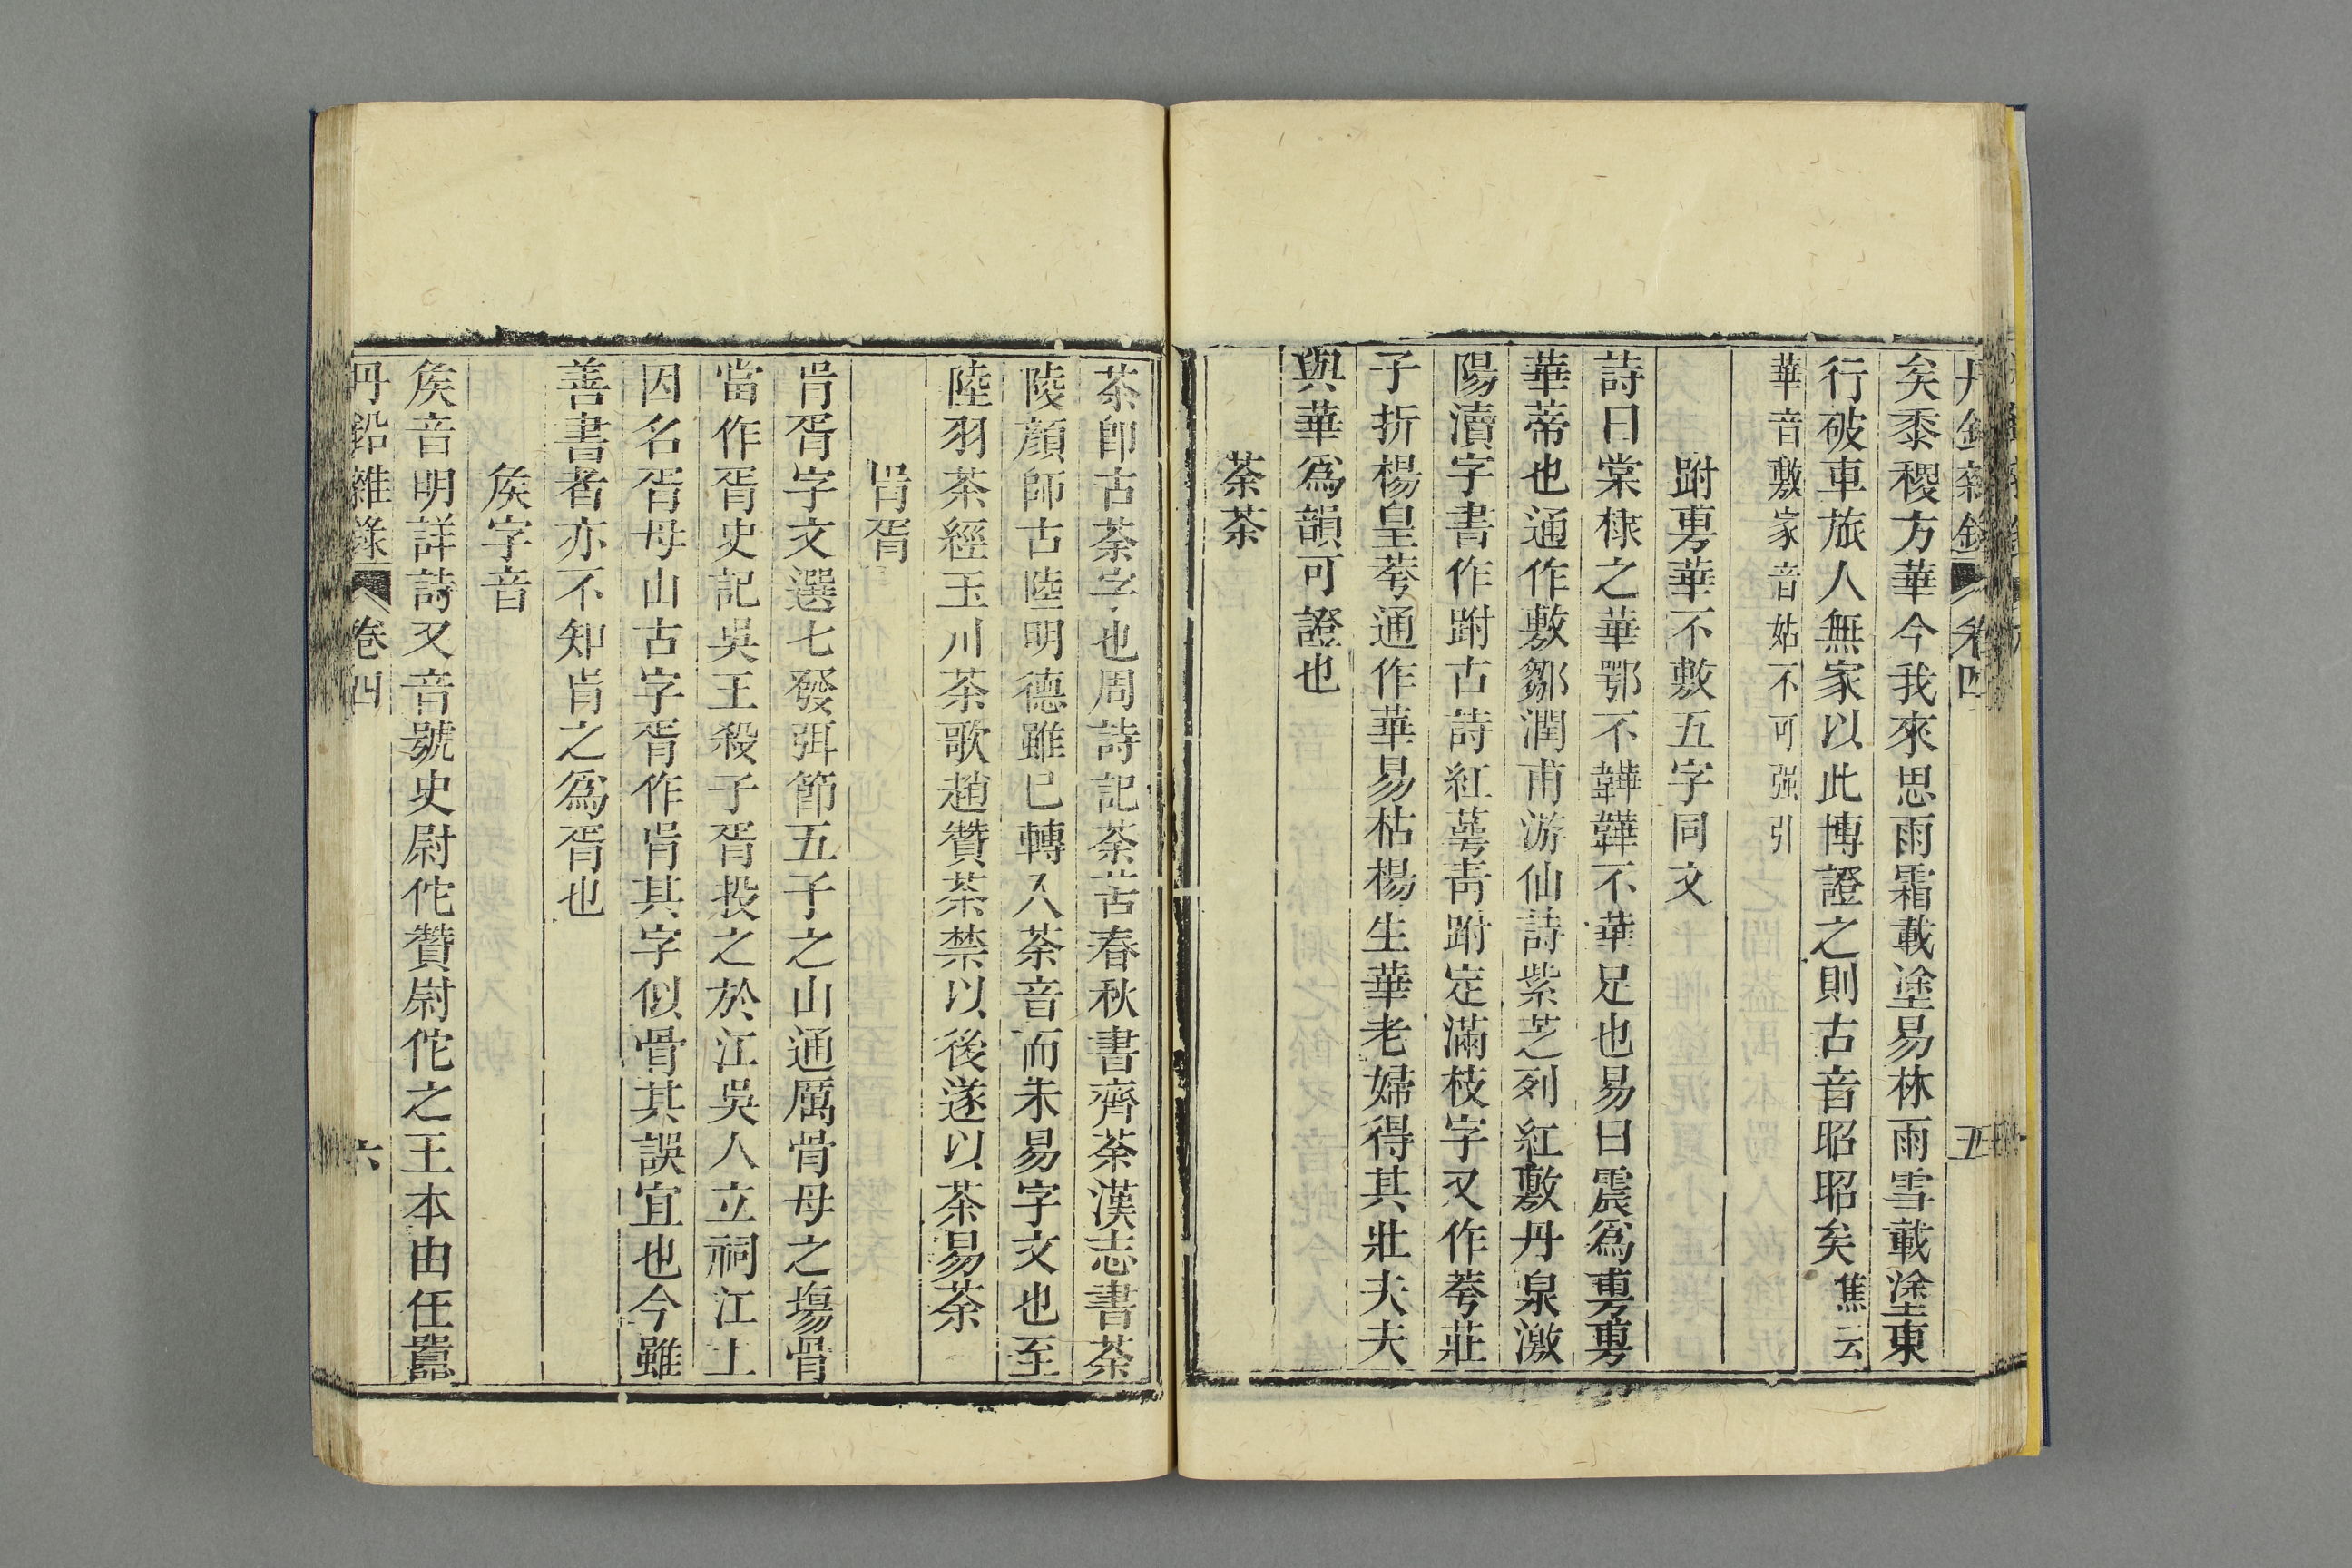 丹鉛雜錄 卷四 五
矣黍稷方華今我來思雨霜載塗易林雨雪載塗東
行破車旅人無家以此博證之則古音昭昭矣焦云
華音敷家音姑不可强引
跗尃華不敷五字同文
詩曰棠棣之華鄂不韡韡不華足也易曰震爲尃尃
華蒂也通作敷鄒潤甫游仙詩紫芝列紅敷丹泉激
陽瀆字書作跗古詩紅萼靑跗定滿枝字又作荂莊
子折楊皇荂通作華易枯楊生華老婦得其壯夫夫
與華爲韻可證也
荼茶
茶卽古荼字也周詩記荼苦春秋書齊荼漢志書荼
陵顔師古陸明德雖已轉入茶音而未易字文也至
陸羽茶經玉川茶歌趙贊茶禁以後遂以茶易荼
肻胥
肻胥字文選七發弭節五子之山通厲骨母之塲骨
當作胥史記吳王殺子胥投之於江吳人立祠江上
因名胥母山古字胥作肻其字似骨其誤宜也今雖
善書者亦不知肻之爲胥也
矦字音
矦音明詳詩又音號史尉佗贊尉佗之王本由任囂
丹鉛雜錄 卷四 六